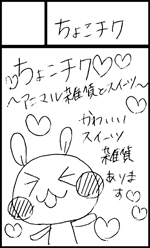 ちょこチク
ちょこチク♡♡
～アニマル雑貨とスイーツ～
かわいい
スイーツ
雑貨
ありま
す♡